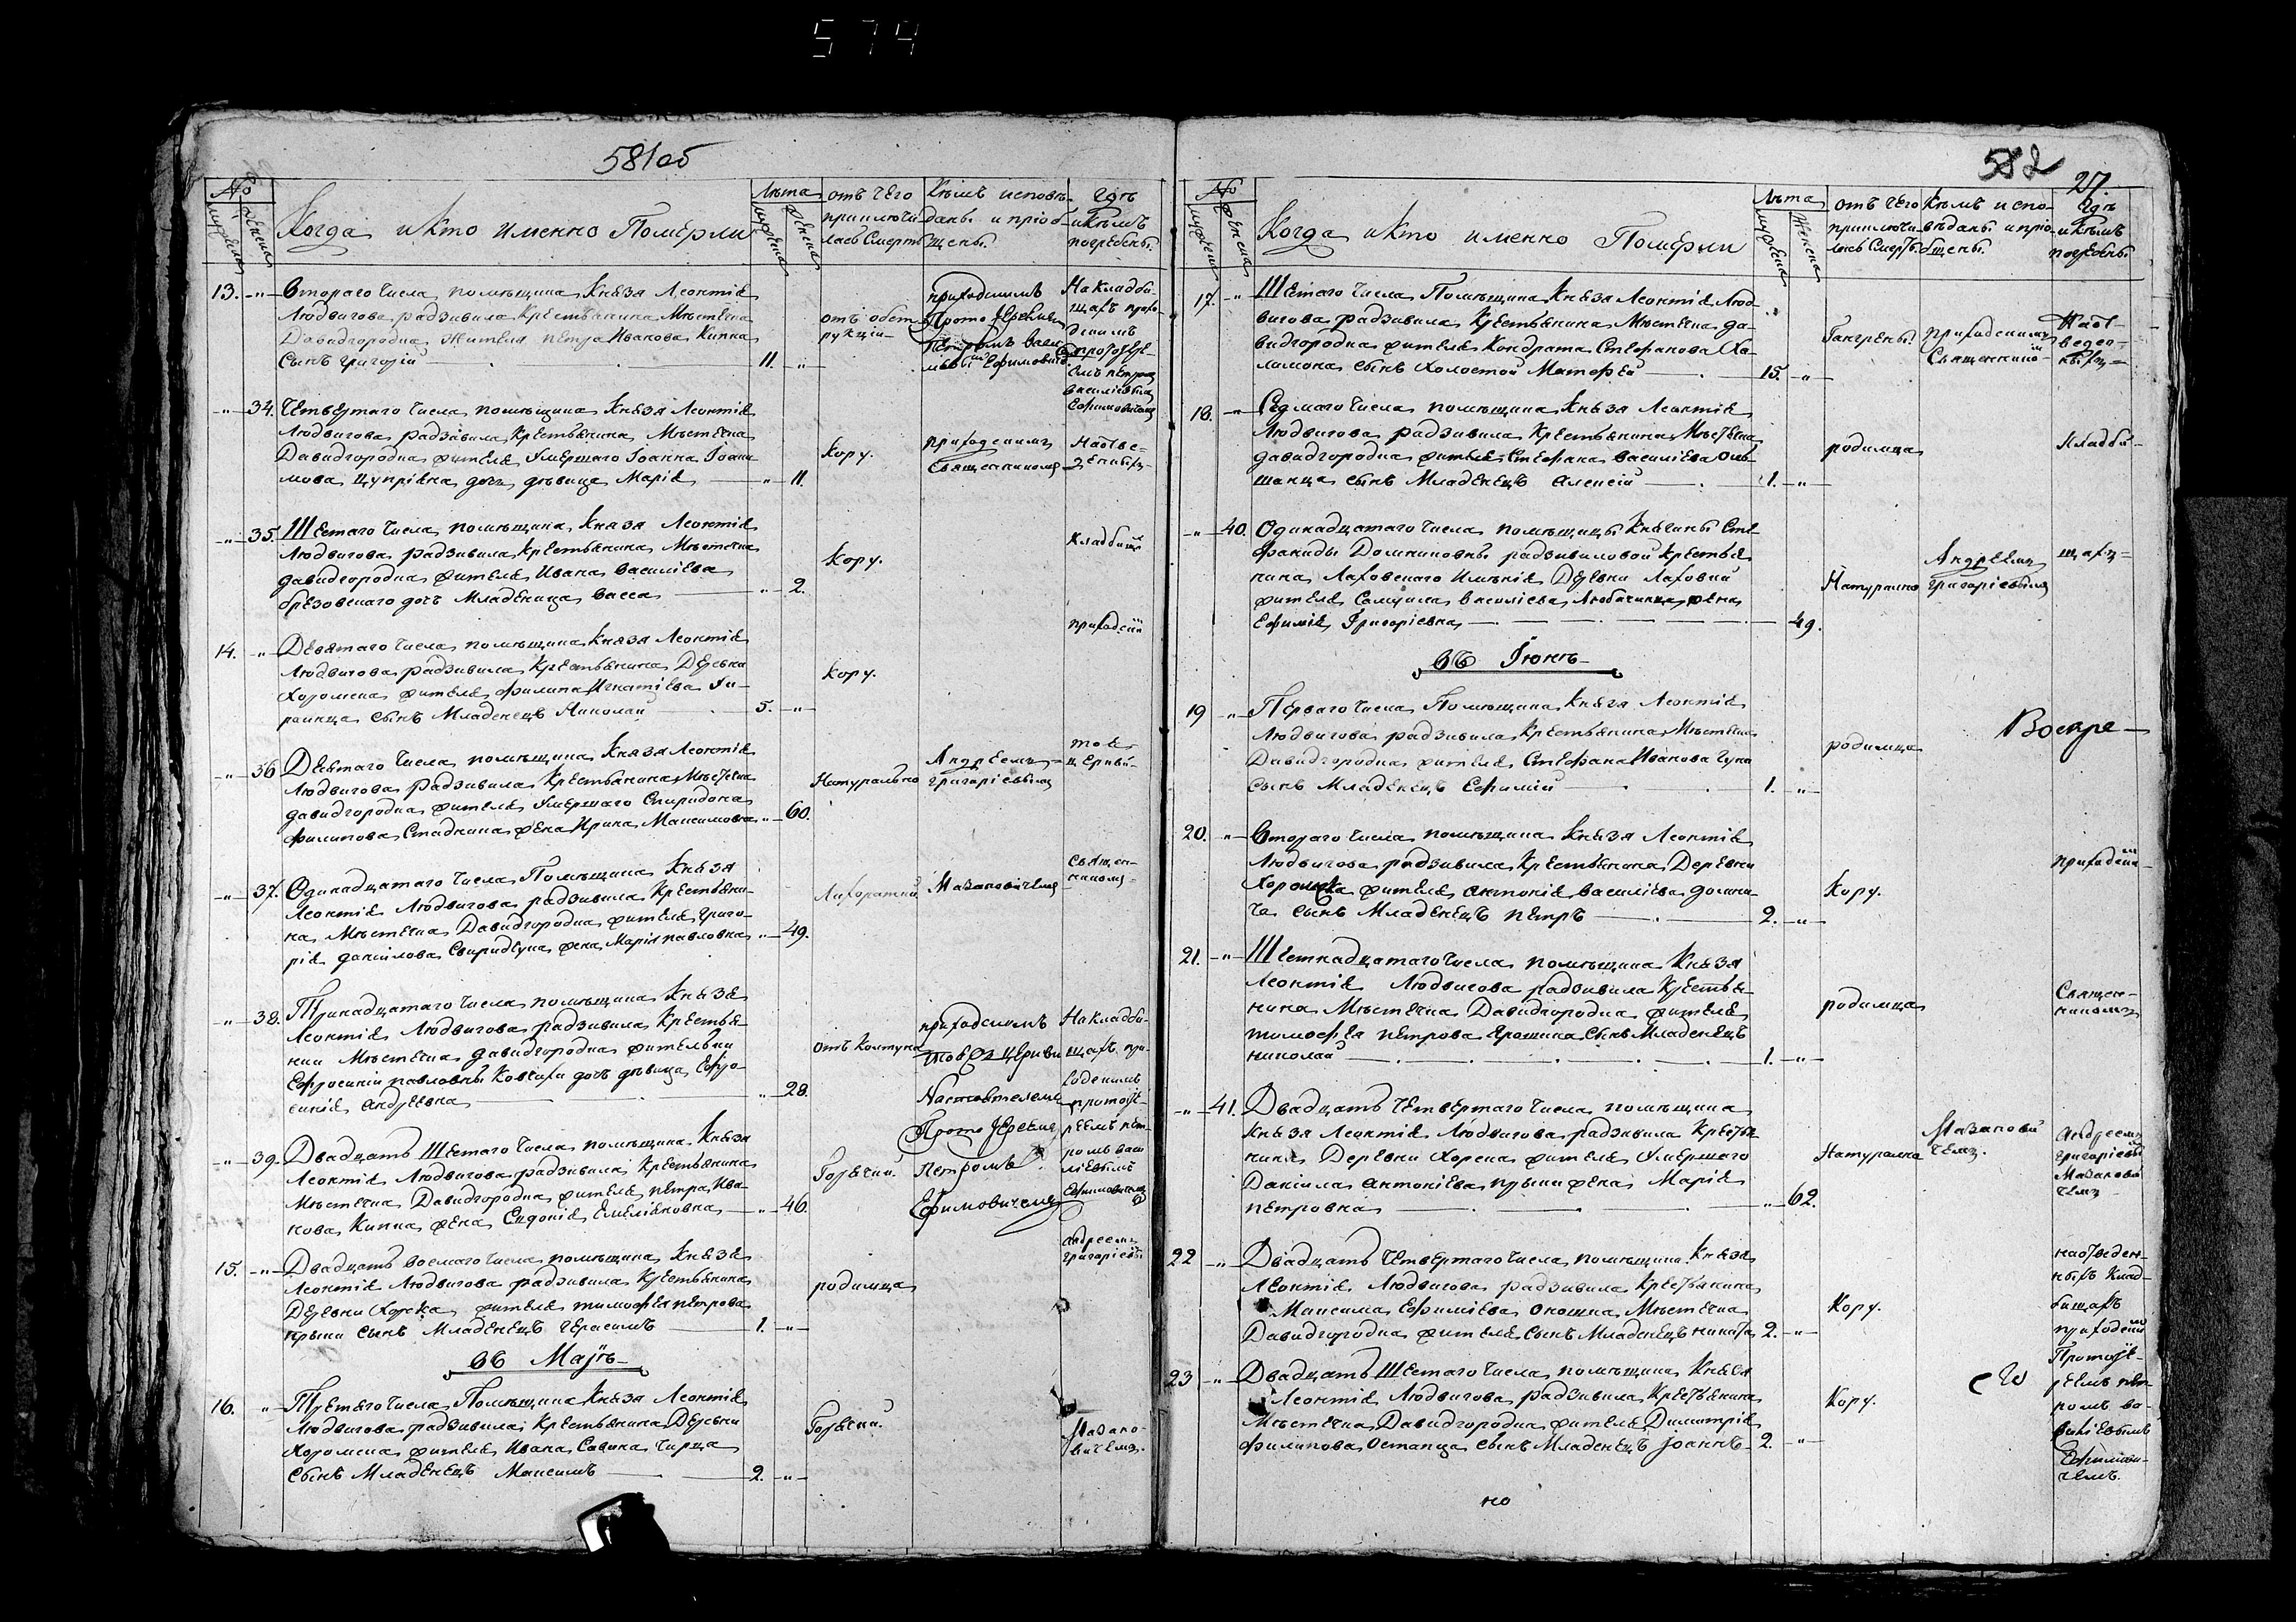 574
581об
№ мужеска женска
Когда и кто именно Померли
Лѣта мужеска женска
отъ чего приключилась Смерть
Кѣмъ исповѣданы и пріобщены.
Гдѣ и кѣмъ погребены.
13. Втораго числа, помѣщика Князя Леонтія
Людвигова радзивила крестьянина Мѣстечка
Давидгородка Жителя петра Иванова Кипка
Сынъ григорій 11.
отъ обст-
рукціи
приходскимъ
Прото Іереемъ
Петромъ Васи-
На кладби-
щахъ прихо-
дскимъ
протоіере-
омъ петромъ
василіевымъ
Ефимовичемъ
34. Четвертаго числа помѣщика Князя Леонтія
Людвигова радзивила Крестьянина Мѣстечка
Давидгородка жителя Умершаго Іоанна Іоаки-
мова дочь дѣвица Марія 11.
кору.
приходскимъ
Священникомъ
35. Шестаго числа помѣщика Князя Леонтія
Людвигова радзивила крестьянина Мѣстечка
давидгородка жителя Ивана Василіева
брезовскаго дочь Младеница Васса 2.
кору.
Кладбищ
14. Девятаго числа помѣщика Князя Леонтія
Людвигова радзивила крестьянина Деревни
Хоромска жителя Филипа Игнатіева
сынъ Младенецъ Николай 5.
кору.
приходскі
36 Девятаго числа помѣщика Князя Леонтія
Людвигова радзивила крестьянина Мѣстечка
давидгородка жителя Умершаго Спиридона
Филипова Стадника жена Ирина Максимовна 60.
Натурально
Андреемъ
григоріевымъ
тоя
церкви
37. Одинадцатаго числа Помѣщика Князя
Леонтія Людвигова радзивила Крестьяни-
на Мѣстечка Давидгородка жителя григо-
рія данилова жена Марія павловна 49.
Мазановичемъ
священ-
никомъ
38. Тринадцатаго числа помѣщика Князя
Леонтія Людвигова радзивила Крестья-
нки Мѣстечка давидгородка жительки
Ефросиніи павловны дочь дѣвица Ефро-
синія Андреевна 28.
отъ колтуна
приходскимъ
тоя церкви
Настоятелемъ
Прото Іереемъ
На кладби-
щахъ при-
ходскимъ
протоіе-
реемъ пет-
ромъ васи
ліевымъ
Ефимовичемъ
39. Двадцать Шестаго числа помѣщика Князя
Леонтія Людвигова радзивила Крестьянина
Мѣстечка Давидгородка жителя петра Ива-
нова Кипка жена Евдокія Емеліяновна 46.
Горячки.
Петромъ
Ефимовичемъ
Андреемъ
григоріевы
15. Двадцать восмаго числа помѣщика Князя
Леонтія Людвигова радзивила Крестьянина
Деревни Хорска жителя тимофея петрова
крыки сынъ Младенецъ герасимъ 1.
родимца
въ Маіѣ
16. Третяго числа Помѣщика Князя Леонтія
Людвигова радзивила Крестьянина Деревни
Хоромска жителя Ивана Савина
сынъ Младенецъ Максимъ 2.
Горячки.
Мазано-
вичемъ.
582
27.
№ мужеска женска
Когда и кто именно Померли
Лѣта мужеска Женска
отъ чего приключилась Смерть.
Кѣмъ исповѣданы и пріобщены.
Гдѣ и кѣмъ погребены
17. Шестаго числа Помѣщика Князя Леонтія Люд-
вигова радзивила Крестьянина Мѣстечка да-
видгородка жителя Кондрата Стефанова Ха-
ламона сынъ холостой Матфей 15.
Гангрены
приходскимъ
Священнико-
18. Седмаго числа помѣщика Князя Леонтія
Людвигова радзивила Крестьянина Мѣстечка
давидгородка жителя Стефана Василіева Оль-
шанца сынъ Младенецъ Алексій 1.
родимца
Кладби-
40. Одинадцатаго числа помѣщицы Княгини Сте-
фаниды Доминиковны радзивиловой крестья-
нина Лаховскаго Имѣнія Деревни Лаховки
жителя Самуила Василіева жена
Ефимія Григоріевна 49.
Натурално
Андреемъ
григоріевымъ
щахъ
въ Іюнѣ
19 Перваго числа Помѣщика Князя Леонтія
Людвигова радзивила крестьянина Мѣстечка
Давидгородка жителя Стефана Иванова
сынъ Младенецъ Ефимій 1.
родимца
Воскре-
20. Втораго числа помѣщика Князя Леонтія
Людвигова радзивила Крестьянина Деревни
Хоромска жителя Антонія Василіева
сынъ Младенецъ петръ 2.
Кору.
21. Шеснадцатаго числа помѣщика Князя
Леонтія Людвигова радзивила Крестья-
нина Мѣстечка Давидгородка жителя
тимофея петрова Ярошика сынъ Младенецъ
николай 1.
родимца
Священ-
никомъ
41. Двадцать четвертаго числа помѣщика
князя Леонтія Людвигова радзивила Крестья-
нина Деревни Хорска жителя Умершаго
Даніила Антоніева крыки жена Марія
петровна 62.
Натурална
Мазанови
чемъ.
Андреемъ
григоріевы
Мазанови
чемъ
22 Двадцать четвертаго числа помѣщика Князя
Леонтія Людвигова радзивила крестьянина
Максима Ефиміева Мѣстечка
Давидгородка жителя сынъ Младенецъ никита 2.
Кору.
на отведен-
ныхъ клад-
бищахъ
приходски
Протоіе-
реемъ пет-
ромъ ва-
силіевымъ
Ефимови-
чемъ.
23 Двадцать Шестаго числа помѣщика Князя
Леонтія Людвигова радзивила крестьянина
Мѣстечка Давидгородка жителя Димитрія
Филипова Остапца сынъ Младенецъ Іоаннъ 2.
Кору.
но